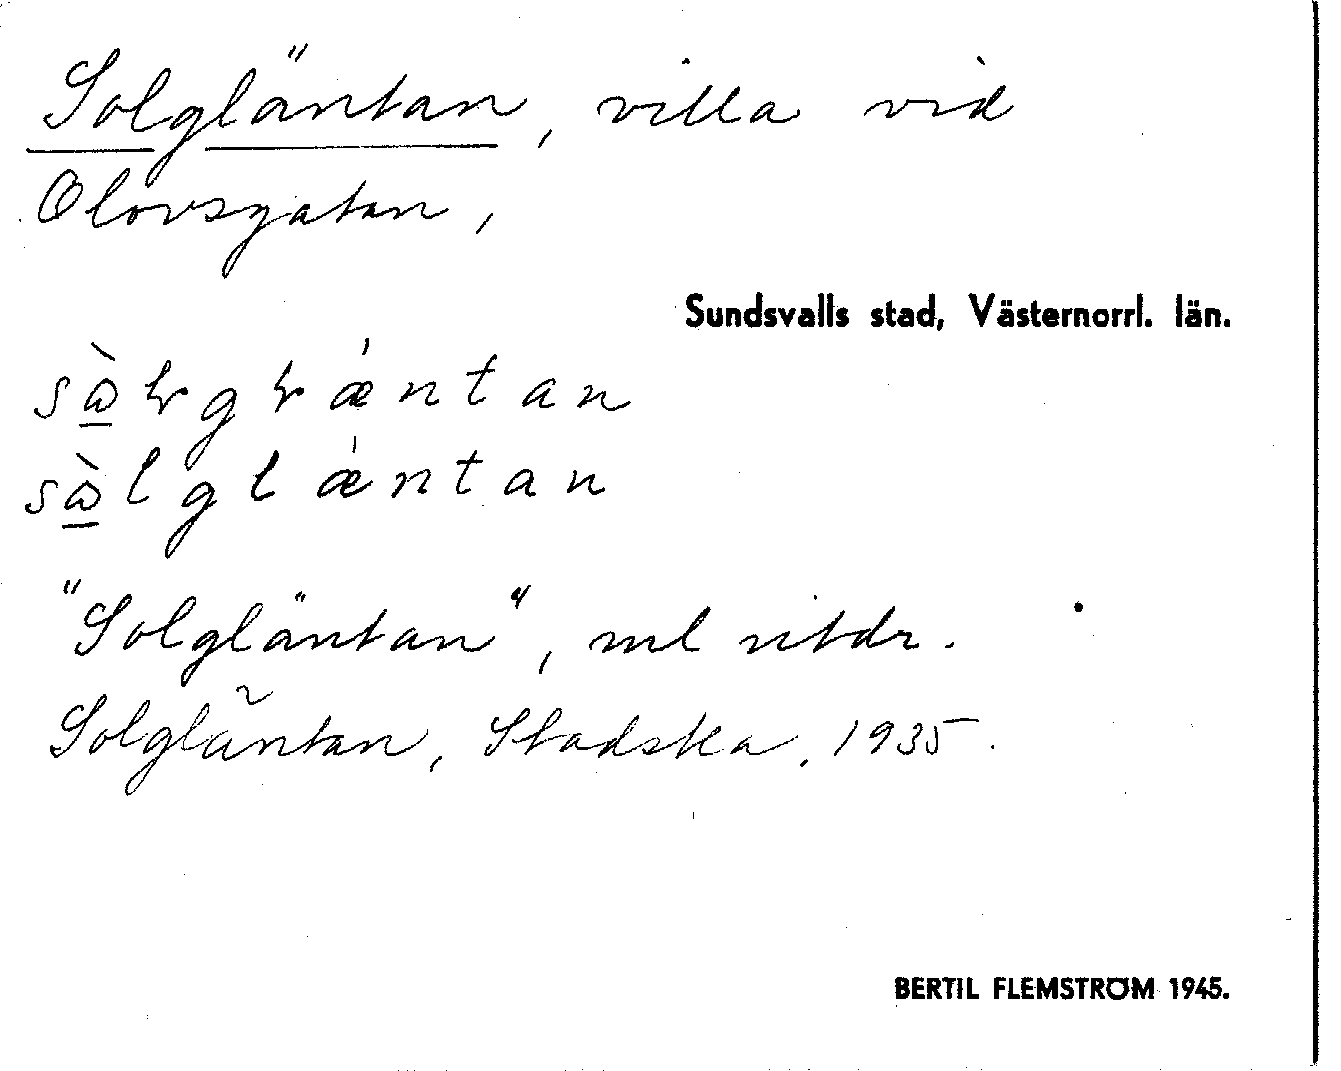 Solgläntan, villa vid
Olovsgatan,
Sundsvalls stad, Västernorrl. län.
"Solgläntan", ml utdr.
Solgläntan, Stadska. 1935.
BERTIL FLEMSTRÖM 1945.